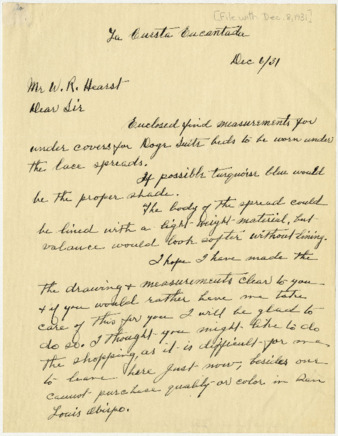 [File with Dec. 8, 1931]
La Cuesta Encantada
Dec 6/31
Mr W. R. Hearst
Dear Sir
Enclosed find measurements for
under covers for Doge Suite beds to be worn under
the lace spreads.
If possible turquoise blue would
be the proper shade.
The body of the spread could
be lined with a light weight material, but
valance would look softer without lining.
I hope I have made the
the drawing & measurements clear to you
& if you would rather have me take
care of this for you I will be glad to
do so. I thought you might like to do
the shopping, as it is difficult for me
to leave here just now, besides one
cannot purchase quality or color in San
Louis Obispo.